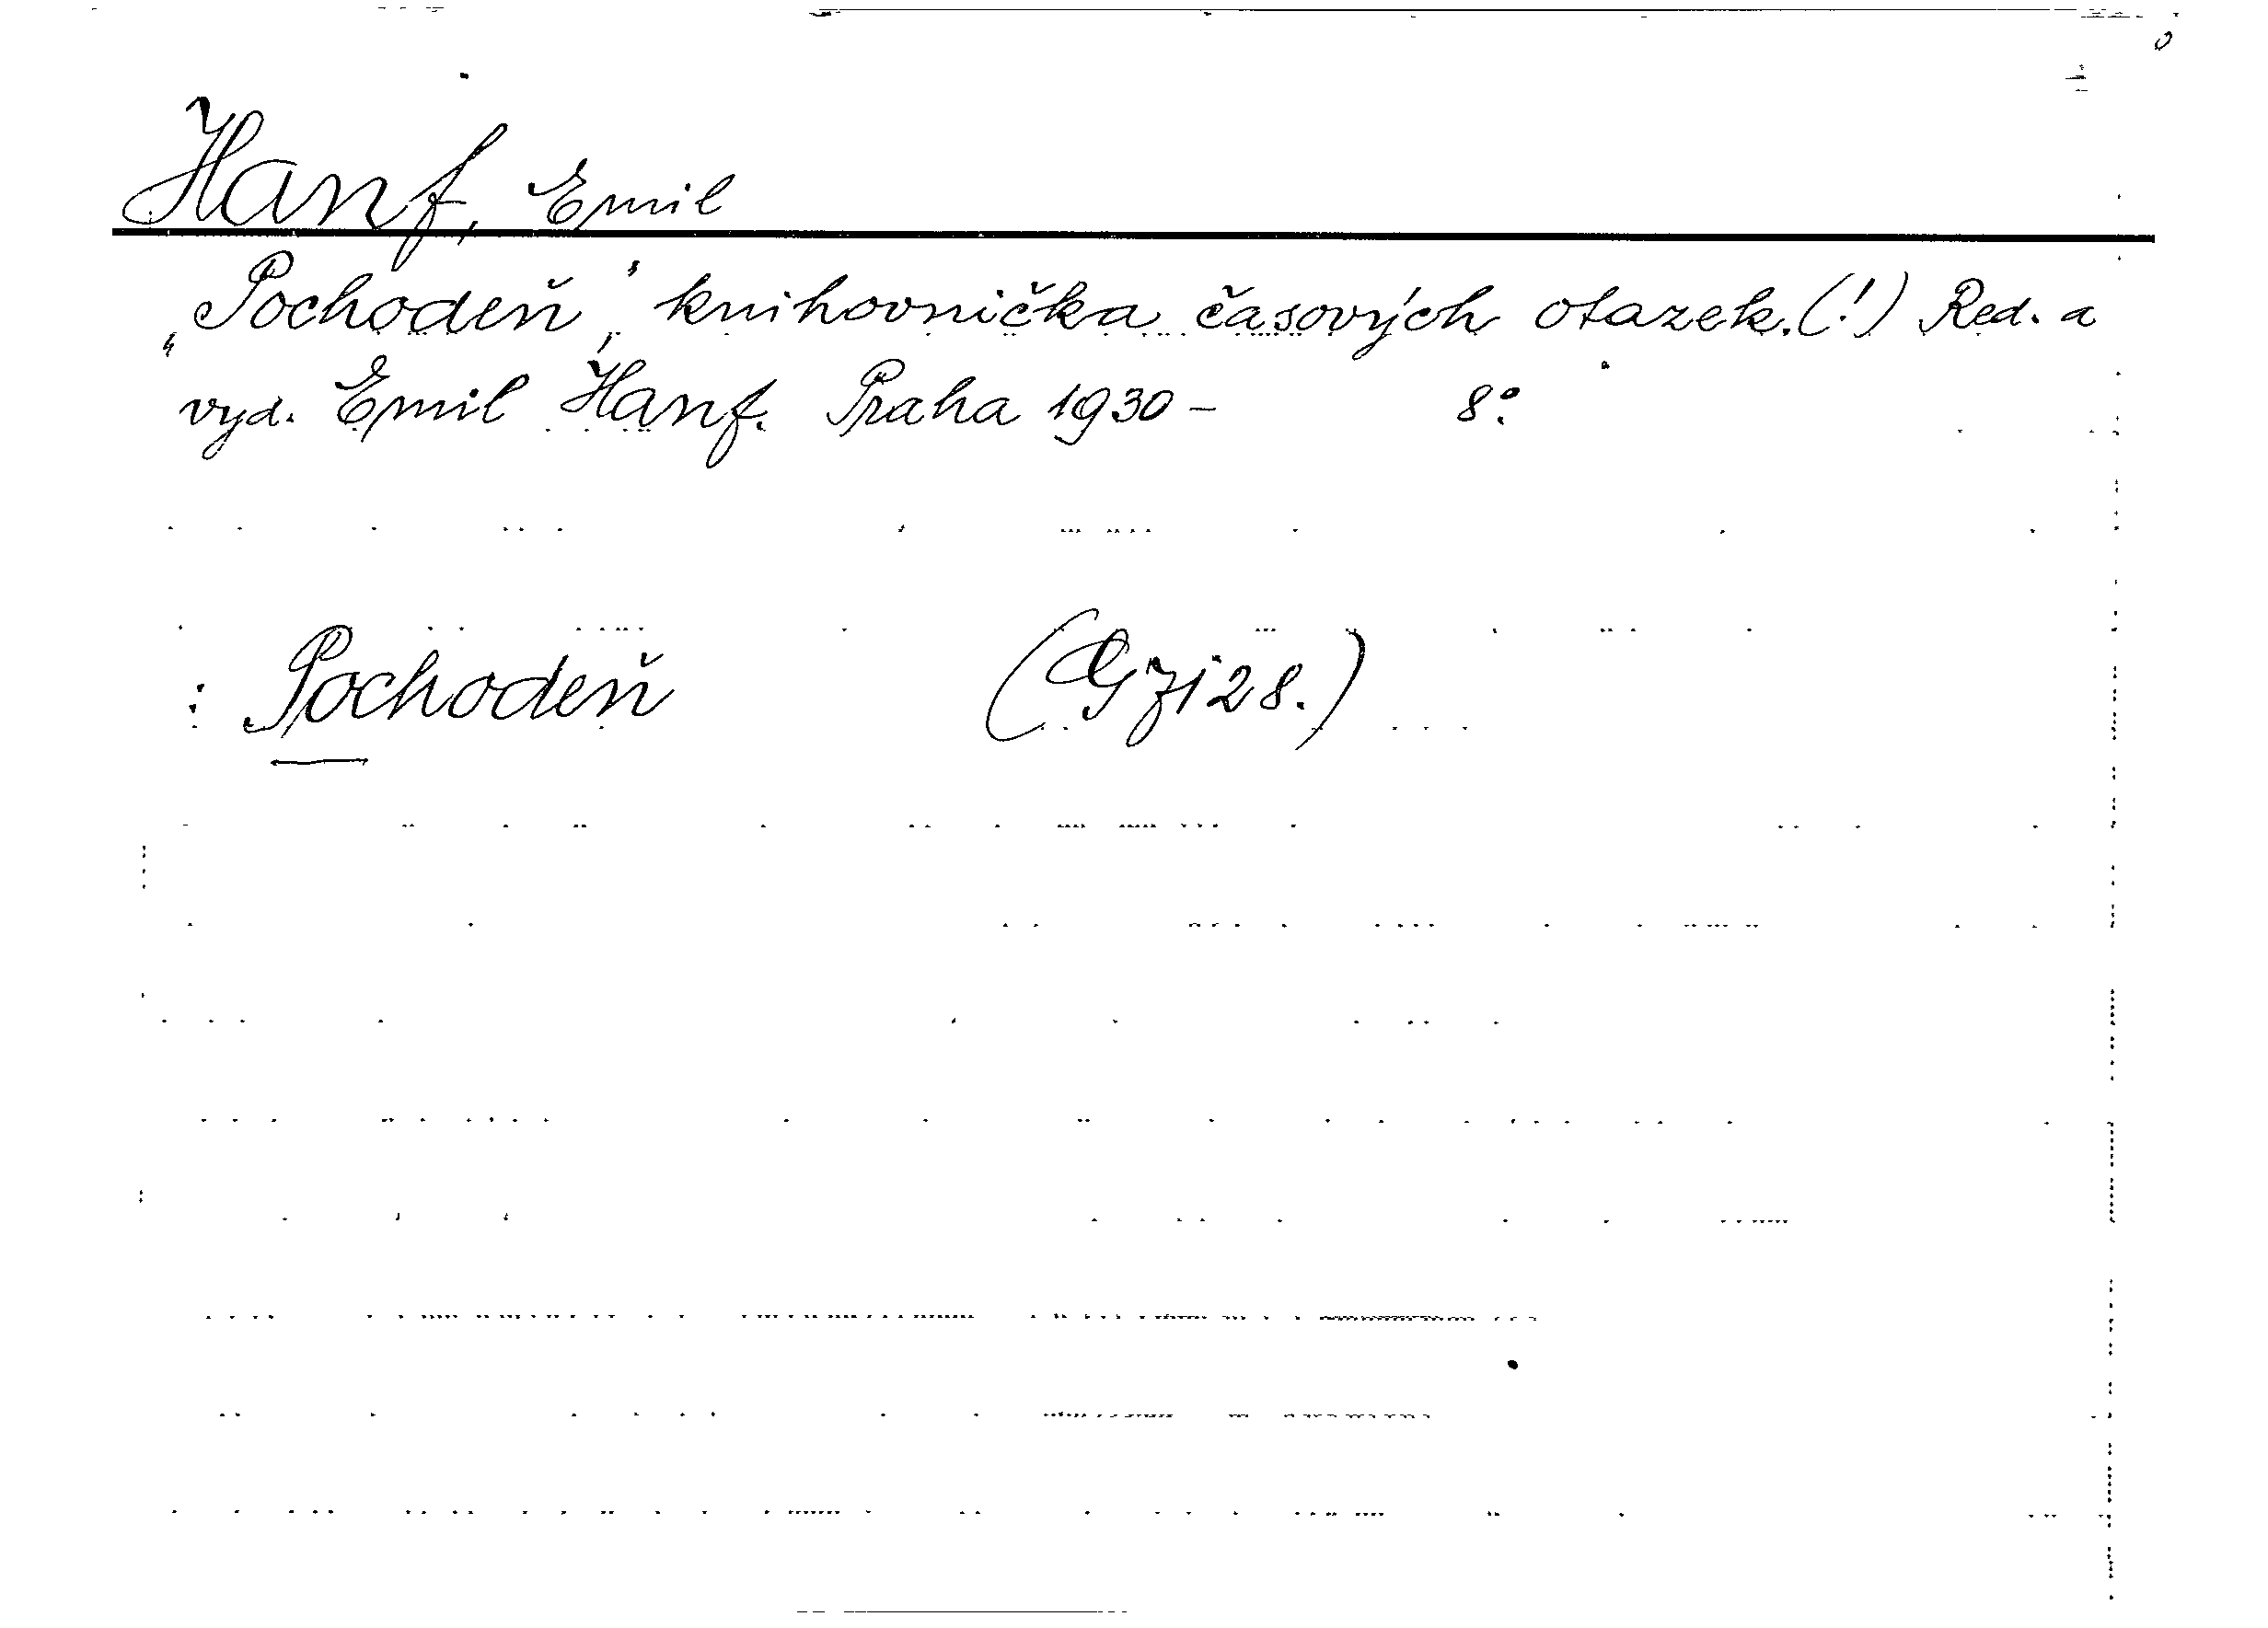 Hanf, Emil
„Pochodeň", knihovnička časových otazek.(!) Red. a
vyd. Emil Hanf. Praha 1930 – 8°.
: Pochodeň (G 7128.)